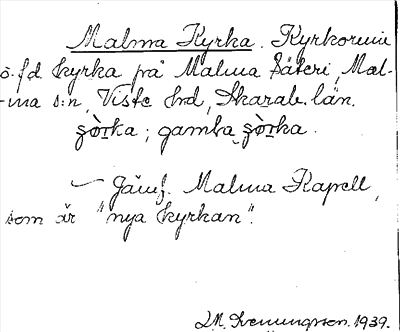 Malma Kyrka. Kyrkoruin
o. f.d. kyrka på Malma Säteri, Mal-
-ma s:n, Viste hrd, Skarab. län.
ʂò̱rka ; gamla ʂò̱rka.
Jämf. Malma Kapell,
som är "nya kyrkan".
1939.